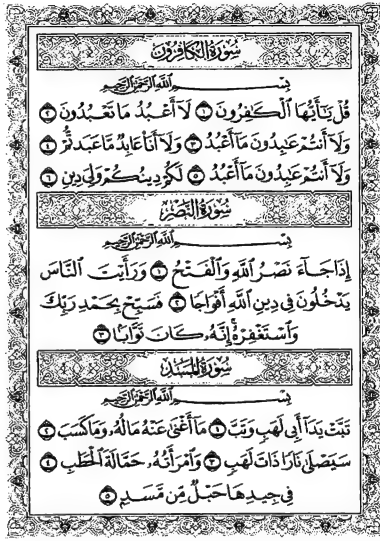 سُورَةُ الكَافِرُونَ
بِسْمِ اللَّهِ الرَّحْمَٰنِ الرَّحِيمِ
قُلْ يَٰٓأَيُّهَا ٱلْكَٰفِرُونَ ١ لَآ أَعْبُدُ مَا تَعْبُدُونَ ٢
وَلَآ أَنتُمْ عَٰبِدُونَ مَآ أَعْبُدُ ٣ وَلَآ أَنَا۠ عَابِدٌ مَّا عَبَدتُّمْ ٤
وَلَآ أَنتُمْ عَٰبِدُونَ مَآ أَعْبُدُ ٥ لَكُمْ دِينُكُمْ وَلِيَ دِينِ ٦
سُورَةُ النَّصْرِ
بِسْمِ اللَّهِ الرَّحْمَٰنِ الرَّحِيمِ
إِذَا جَآءَ نَصْرُ ٱللَّهِ وَٱلْفَتْحُ ١ وَرَأَيْتَ ٱلنَّاسَ
يَدْخُلُونَ فِي دِينِ ٱللَّهِ أَفْوَاجًا ٢ فَسَبِّحْ بِحَمْدِ رَبِّكَ
وَٱسْتَغْفِرْهُ ۚ إِنَّهُۥ كَانَ تَوَّابًۢا ٣
سُورَةُ المَسَدِ
بِسْمِ اللَّهِ الرَّحْمَٰنِ الرَّحِيمِ
تَبَّتْ يَدَآ أَبِي لَهَبٍ وَتَبَّ ١ مَآ أَغْنَىٰ عَنْهُ مَالُهُۥ وَمَا كَسَبَ ٢
سَيَصْلَىٰ نَارًا ذَاتَ لَهَبٍ ٣ وَٱمْرَأَتُهُۥ حَمَّالَةَ ٱلْحَطَبِ ٤
فِي جِيدِهَا حَبْلٌ مِّن مَّسَدٍۭ ٥